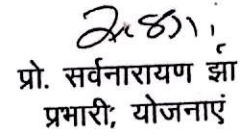 प्रो. सर्वनारायण झा
प्रभारी, योजनाएं